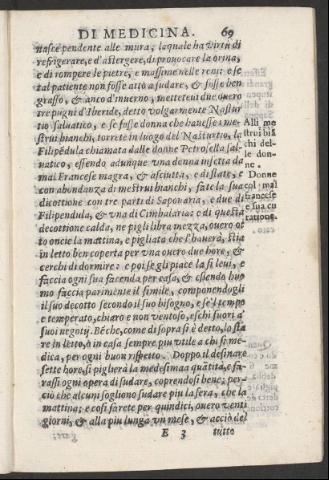 DI MEDICINA. 69
nasce pendente alle mura, laquale ha virtù di
refrigerare, e d'astergere, di prouocare la orina,
e di rompere le pietre, e massime nelle reni: e se
tal patiente non fosse atto a sudare, & fosse ben
grasso, & anco d'inuerno, metteteui due ouero
tre pugni d'Iberide, detto volgarmente Nastur
tio saluatico, e se fosse donna che hauesse i me-
strui bianchi, torrete in luogo del Nasturtio, la
Filipēdula chiamata dalle donne Petrosella sal-
uatico, essendo adunque vna donna infetta da
mal Francese magra, & asciutta, e di state, e
con abundanza di mestrui bianchi, fate la sua
dicottione con tre parti di Saponaria, e due di
Filipendula, & vna di Cimbalaria: e di questa
decottione calda, ne pigli libra mezza, ouero ot
to oncie la mattina, e pigliata che l'hauerà, stia
in letto ben coperta per vna ouero due hore, &
cerchi di dormire: e poi se gli piace la si leui, e
faccia ogni sua facenda per casa, & essendo huo
mo faccia parimente il simile, componendogli
il suo decotto secondo il suo bisogno, e se'l tempo
e temperato, chiaro e non ventoso, eschi fuori a'
suoi negotij. Bēche, come di sopra si è detto, lo sta
re in letto, ò in casa sempre piu vtile a chi si me-
dica, per ogni buon rispetto. Doppo il desinare
sette hore, si piglierà la medesima quātità, e fa-
rassi ogni opera di sudare, coprendosi bene; per-
ciò che alcuni sogliono sudare piu la sera, che la
mattina; e cosi farete per quindici, ouero venti
giorni, & alla piu lunga vn mese, & acciò del
E 3 tutto
Alli me
strui biā
chi del-
le don-
ne.
Donne
col mal
francese
e sua cu
ratione.